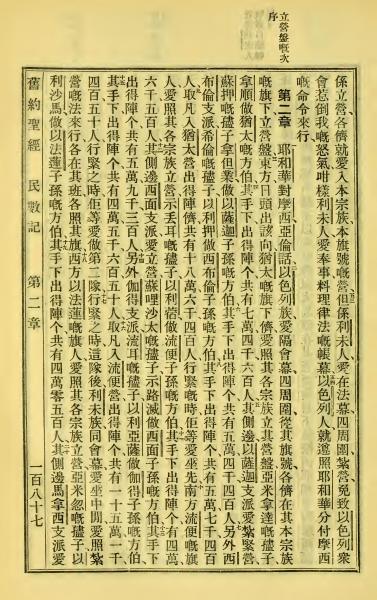 立營盤嘅次序
係立營各儕就愛入本宗族本旗號嘅營但係利未人愛在法幕四周圍紮營免致以色列衆
會惹倒我嘅怒氣咁樣利未人愛奉事料理律法嘅帳幕以色列人就遵照耶和華分付摩西
嘅命令來行
第二章 耶和華對摩西亞倫話以色列族愛隔會幕四周圍從其旗號各儕在其本宗族
嘅旗下立營盤東方日頭出該向猶太嘅旗下儕愛照其各宗族立其營盤亞米拿達嘅儘子
拿順做猶太嘅方伯其手下出得陣个共有七萬四千六百人其側邊以薩迦支派愛紮緊營
蘇押嘅儘子拿但業做以薩迦子孫嘅方伯其手下出得陣个共有五萬四千四百人另外西
布倫支派希倫嘅儘子以利押做西布倫子孫嘅方伯其手下出得陣个共有五萬七千四百
人取凡入猶太營出得陣儕共有十八萬六千四百人行緊嘅時佢等愛坐先南方流便嘅旗
人愛照其各宗族立營示丟耳嘅儘子以利蓿做流便子孫嘅方伯其手下出得陣个有四萬
六千五百人其側邊西面支派愛立營蘇哩沙太嘅儘子示路滅做西面子孫嘅方伯其手下
出得陣个共有五萬九千三百人另外伽得支派流耳嘅儘子以利亞薩做伽得子孫嘅方伯
其手下出得陣个共有四萬五千六百五十人取凡入流便營出得陣个共有一十五萬一千
四百五十人行緊之時佢等愛做第二隊行緊之時這隊後利未族同會幕愛坐中間愛照紮
營嘅法來行各在其班各照其旗西方以法蓮嘅旗人愛照其各宗族立營亞米忽嘅儘子以
利沙馬做以法蓮子孫嘅方伯其手下出得陣个共有四萬零五百人其側邊馬拿西支派愛
舊約聖經 民數記 第二章 一百八十七